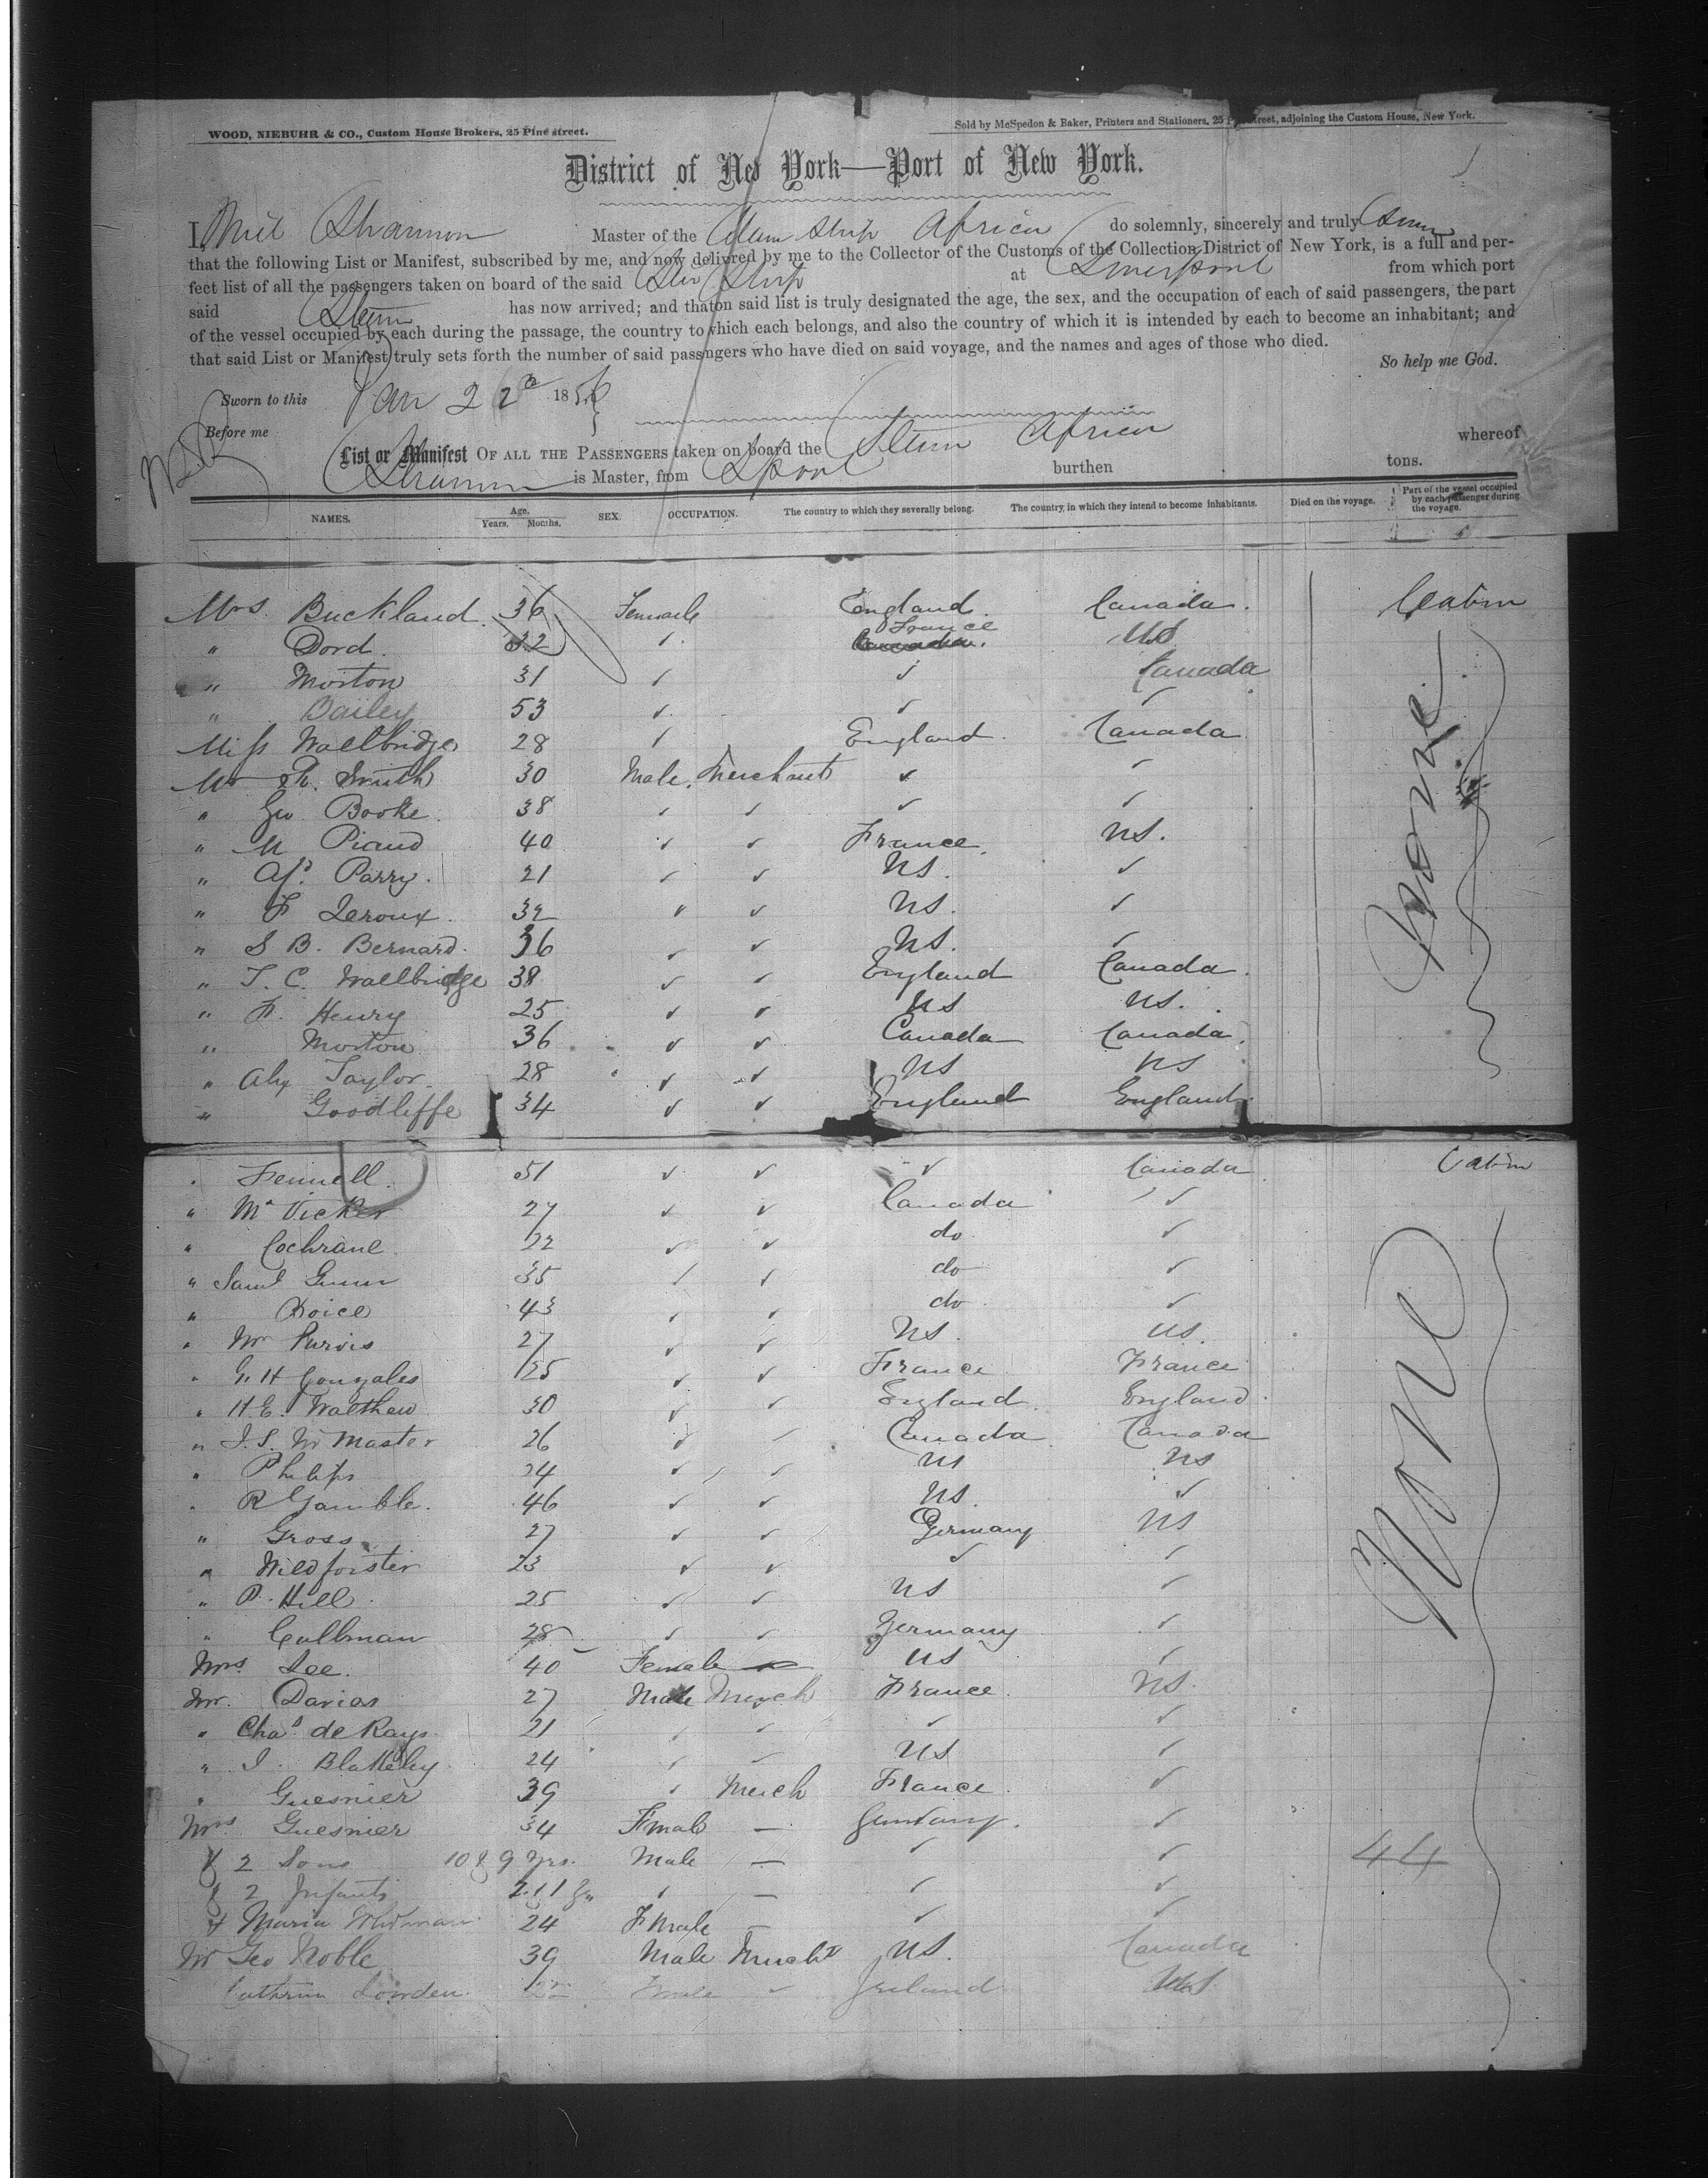 WOOD, NIEBUHR & CO., Custom House Brokers, 25 Pine street.
Sold by McSpedon & Baker, Printers and Stationers, 25 Pine street, adjoining the Custom House, New York.
District of New York—Port of New York.
I, Shannon Master of the Steam Ship Africa do solemnly, sincerely and truly
that the following List or Manifest, subscribed by me, and now delivred by me to the Collector of the Customs of the Collection District of New York, is a full and per-
fect list of all the passengers taken on board of the said Ship at Liverpool from which port
said Steam has now arrived; and that on said list is truly designated the age, the sex, and the occupation of each of said passengers, the part
of the vessel occupied by each during the passage, the country to which each belongs, and also the country of which it is intended by each to become an inhabitant; and
that said List or Manifest truly sets forth the number of said passengers who have died on said voyage, and the names and ages of those who died.
So help me God.
Sworn to this Jan 22d 1856
Before me
List or Manifest OF ALL THE PASSENGERS taken on board the Steam Africa whereof
Shannon is Master, from Lpool burthen tons.
NAMES. Age. Years. Months. SEX. OCCUPATION. The country to which they severally belong. The country, in which they intend to become inhabitants. Died on the voyage. Part of the vessel occupied by each passenger during the voyage.
Mrs Buckland 36 Female England Canada Cabin
" Dord 32 ✓ France US
" Morton 31 ✓ ✓ Canada
" Bailey 53 ✓ ✓ ✓
Miss Wallbridge 28 ✓ England Canada
Mr R. Smith 30 Male Merchant ✓ ✓
" Geo Booke 38 ✓ ✓ ✓ ✓
" M Piaud 40 ✓ ✓ France US.
" Parry 21 ✓ ✓ US. ✓
" F Leroux 32 ✓ ✓ US. ✓
" S B. Bernard 36 ✓ ✓ US. ✓
" T. C. Wallbridge 38 ✓ ✓ England Canada
" F. Henry 25 ✓ ✓ US US.
" Morton 36 ✓ ✓ Canada Canada
" Alex Taylor 28 ✓ ✓ US US
" Goodliffe 34 ✓ ✓ England England
" Fennell 51 ✓ ✓ ✓ Canada Cabin
" Mc Vicker 27 ✓ ✓ Canada ✓
" Cochrane 22 ✓ ✓ do ✓
" Saml Gunn 35 ✓ ✓ do ✓
" Choice 43 ✓ ✓ do ✓
" Wm Purvis 27 ✓ ✓ US. US.
" G. H Gonzales 25 ✓ ✓ France France
" H. E. Walthew 30 ✓ ✓ England England
" J. S. Mc Master 26 ✓ ✓ Canada Canada
" Philips 24 ✓ ✓ US US
" R Gamble 46 ✓ ✓ US. ✓
" Gross 27 ✓ ✓ Germany US
" Wildforster 23 ✓ ✓ ✓ ✓
" P. Hill 25 ✓ ✓ US ✓
" Callman 28 ✓ ✓ Germany ✓
Mrs Lee. 40 Female US ✓
Mr. Darias 27 Male Merch France US.
" Chas de Rays 21 ✓ ✓ ✓ ✓
" J. Blakeley 24 ✓ ✓ US ✓
" Guesnier 39 ✓ Merch France ✓
Mrs Guesnier 34 Fmale — Germany. ✓
& 2 Sons 10 & 9 Yrs. Male — ✓ ✓
& 2 Infants ✓ — ✓ ✓
44
& Maria 24 Fmale — ✓ ✓
Mr Geo Noble 39 Male Mercht US. Canada
Cathrine Lowden Fmale ✓ Ireland US.
None
None